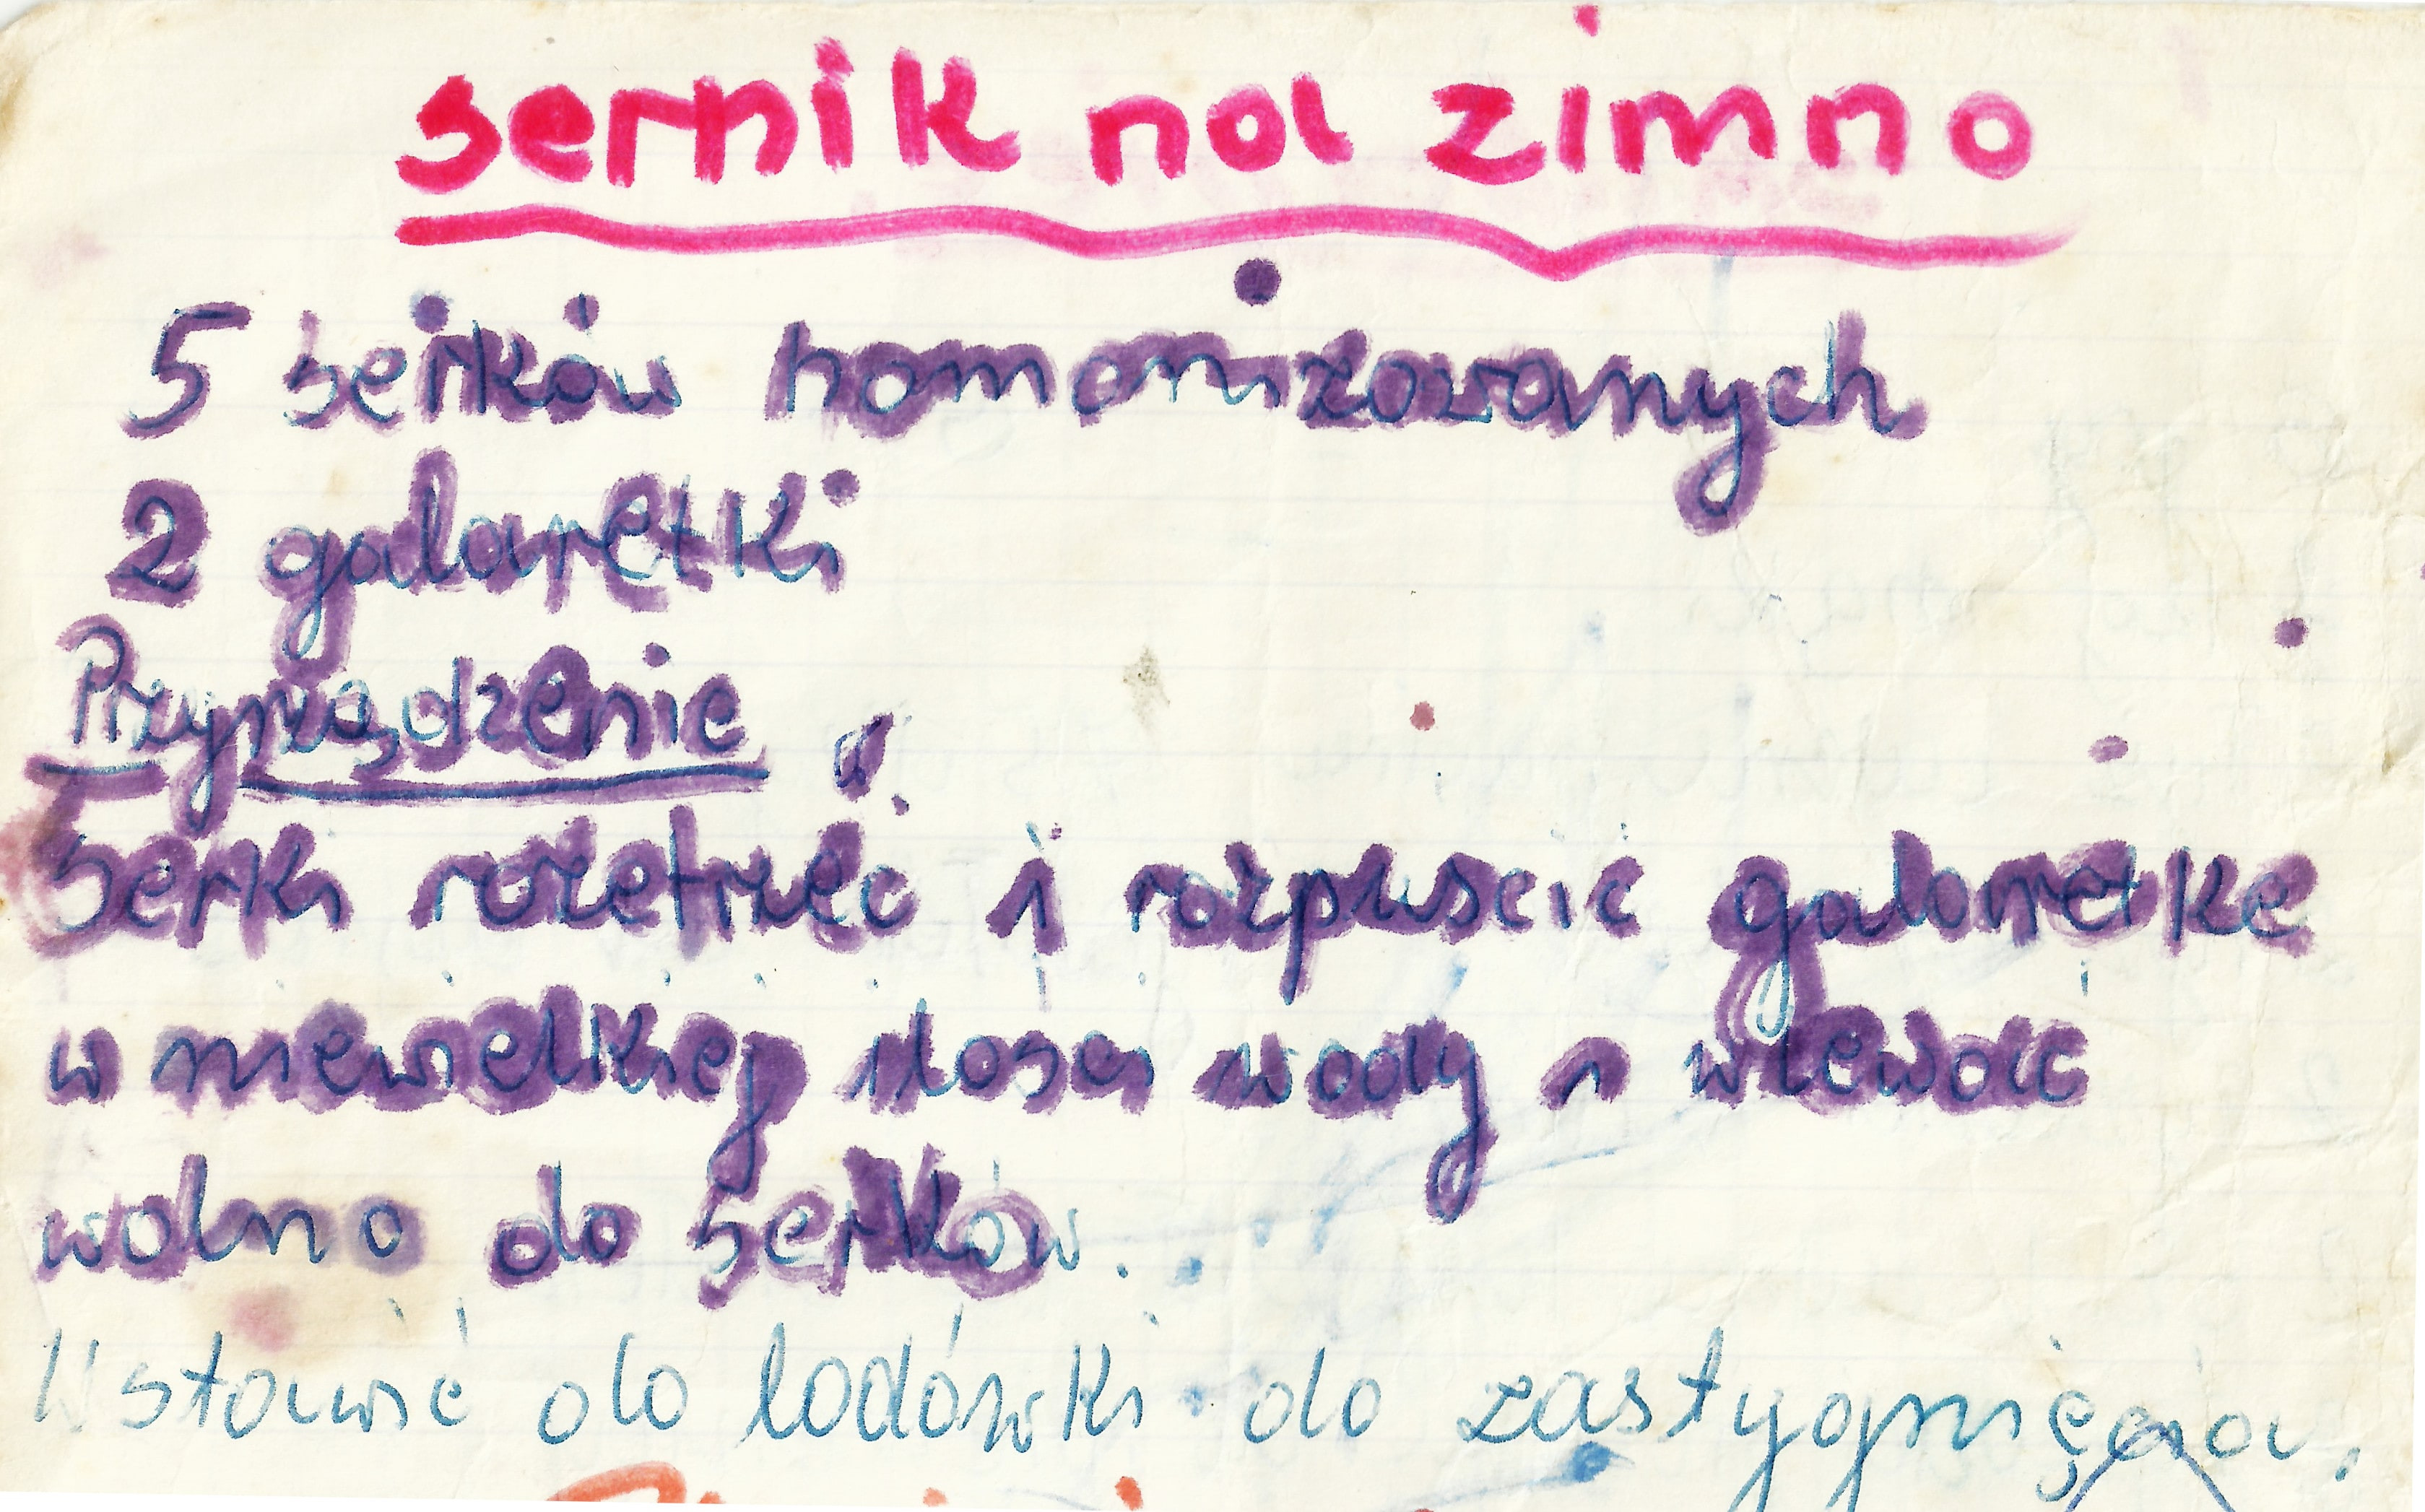 sernik na zimno
5 serków homonizowanych
2 galaretki
Przyrządzenie
Serki rozetrzeć i rozpuscić galaretkę
w niewielkiej ilości wody i wlewać
wolno do serków.
Wstawić do lodówki do zastygnięcia.